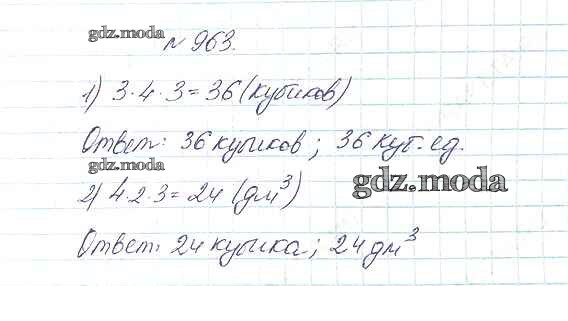 gdz.moda
№ 963.
1) 3·4·3=36 (кубиков)
Ответ: 36 кубиков; 36 куб. ед.
gdz.moda
2) 4·2·3=24 (дм³)
gdz.moda
Ответ: 24 кубика; 24 дм³